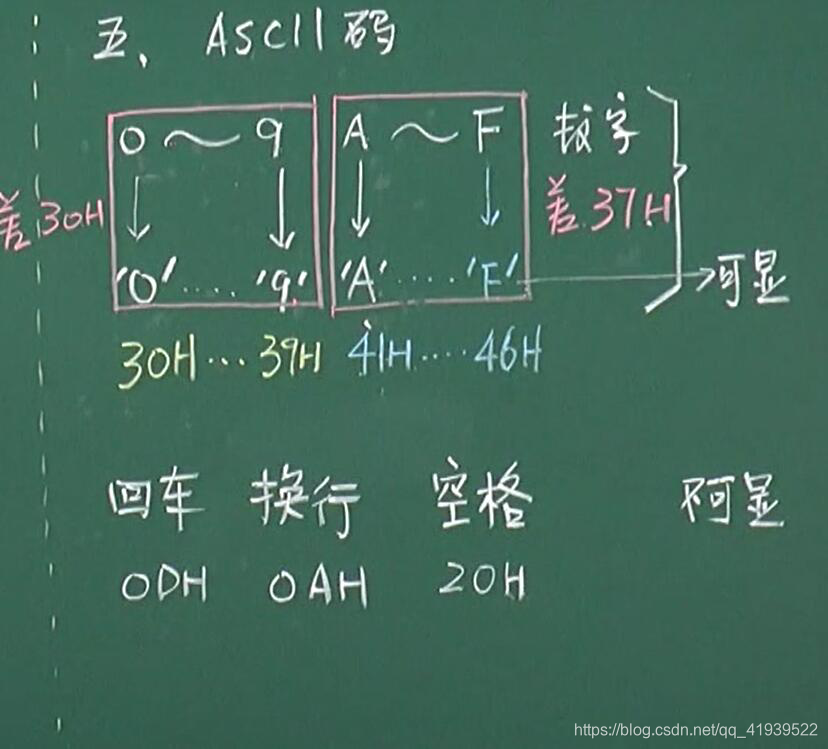 五、ASCII码
0～9 A～F 数字
差30H 差37H
'0'....'9' 'A'....'F' 可显
30H...39H 41H....46H
回车 换行 空格 不可显
0DH 0AH 20H
https://blog.csdn.net/qq_41939522